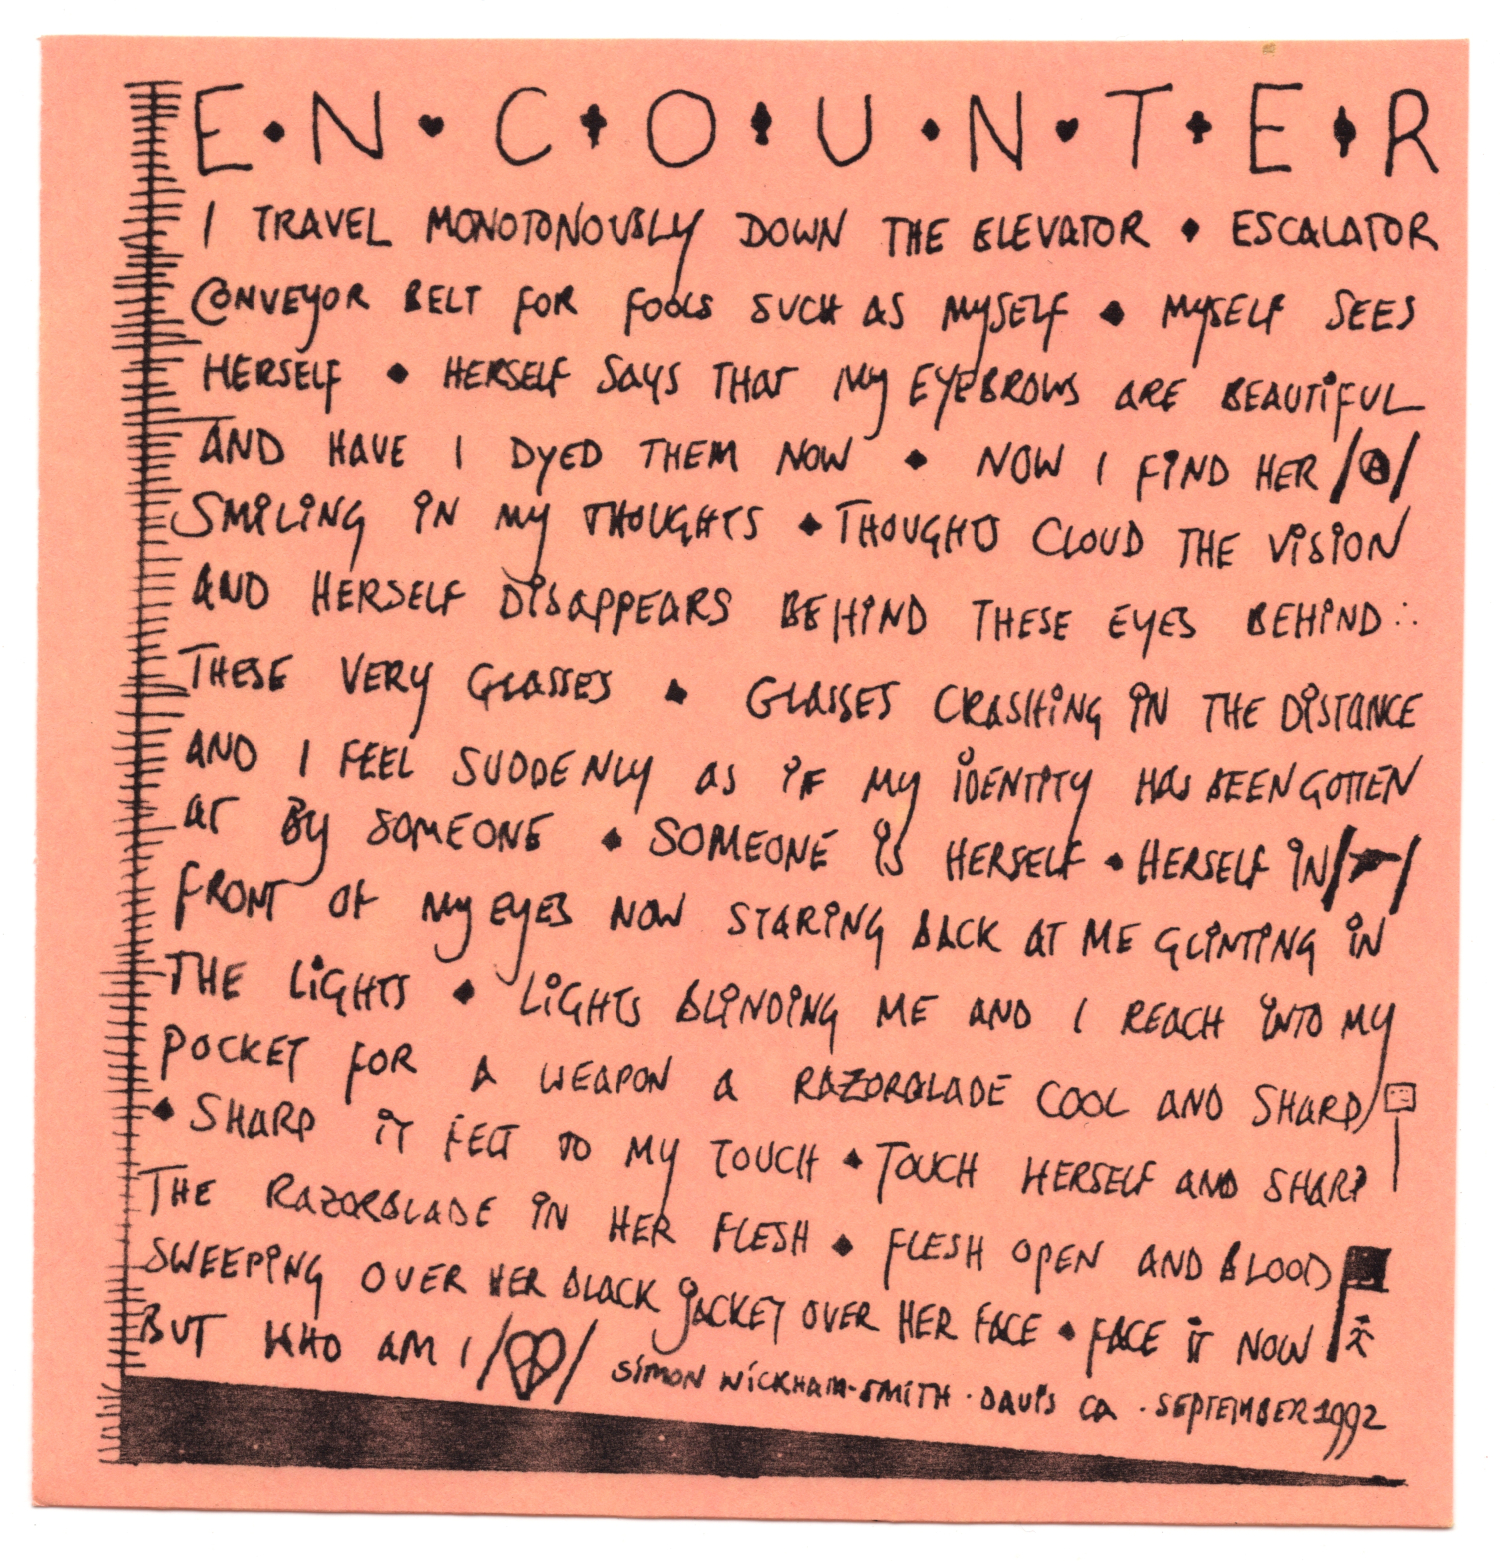 E♦N♥C♣O♠U♦N♥T♣E♠R
I TRAVEL MONOTONOUSLY DOWN THE ELEVATOR ♦ ESCALATOR
CONVEYOR BELT FOR FOOLS SUCH AS MYSELF ♦ MYSELF SEES
HERSELF ♦ HERSELF SAYS THAT MY EYEBROWS ARE BEAUTIFUL
AND HAVE I DYED THEM NOW ♦ NOW I FIND HER /Ⓐ/
SMILING IN MY THOUGHTS ♦ THOUGHTS CLOUD THE VISION
AND HERSELF DISAPPEARS BEHIND THESE EYES BEHIND ∴
THESE VERY GLASSES ♦ GLASSES CRASHING IN THE DISTANCE
AND I FEEL SUDDENLY AS IF MY IDENTITY HAS BEEN GOTTEN
AT BY SOMEONE ♦ SOMEONE IS HERSELF ♦ HERSELF IN / /
FRONT OF MY EYES NOW STARING BACK AT ME GLINTING IN
THE LIGHTS ♦ LIGHTS BLINDING ME AND I REACH INTO MY
POCKET FOR A WEAPON A RAZORBLADE COOL AND SHARP
♦ SHARP IT FELT TO MY TOUCH ♦ TOUCH HERSELF AND SHARP
THE RAZORBLADE IN HER FLESH ♦ FLESH OPEN AND BLOOD
SWEEPING OVER HER BLACK JACKET OVER HER FACE ♦ FACE IT NOW
BUT WHO AM I / / SIMON WICKHAM-SMITH · DAVIS CA · SEPTEMBER 1992